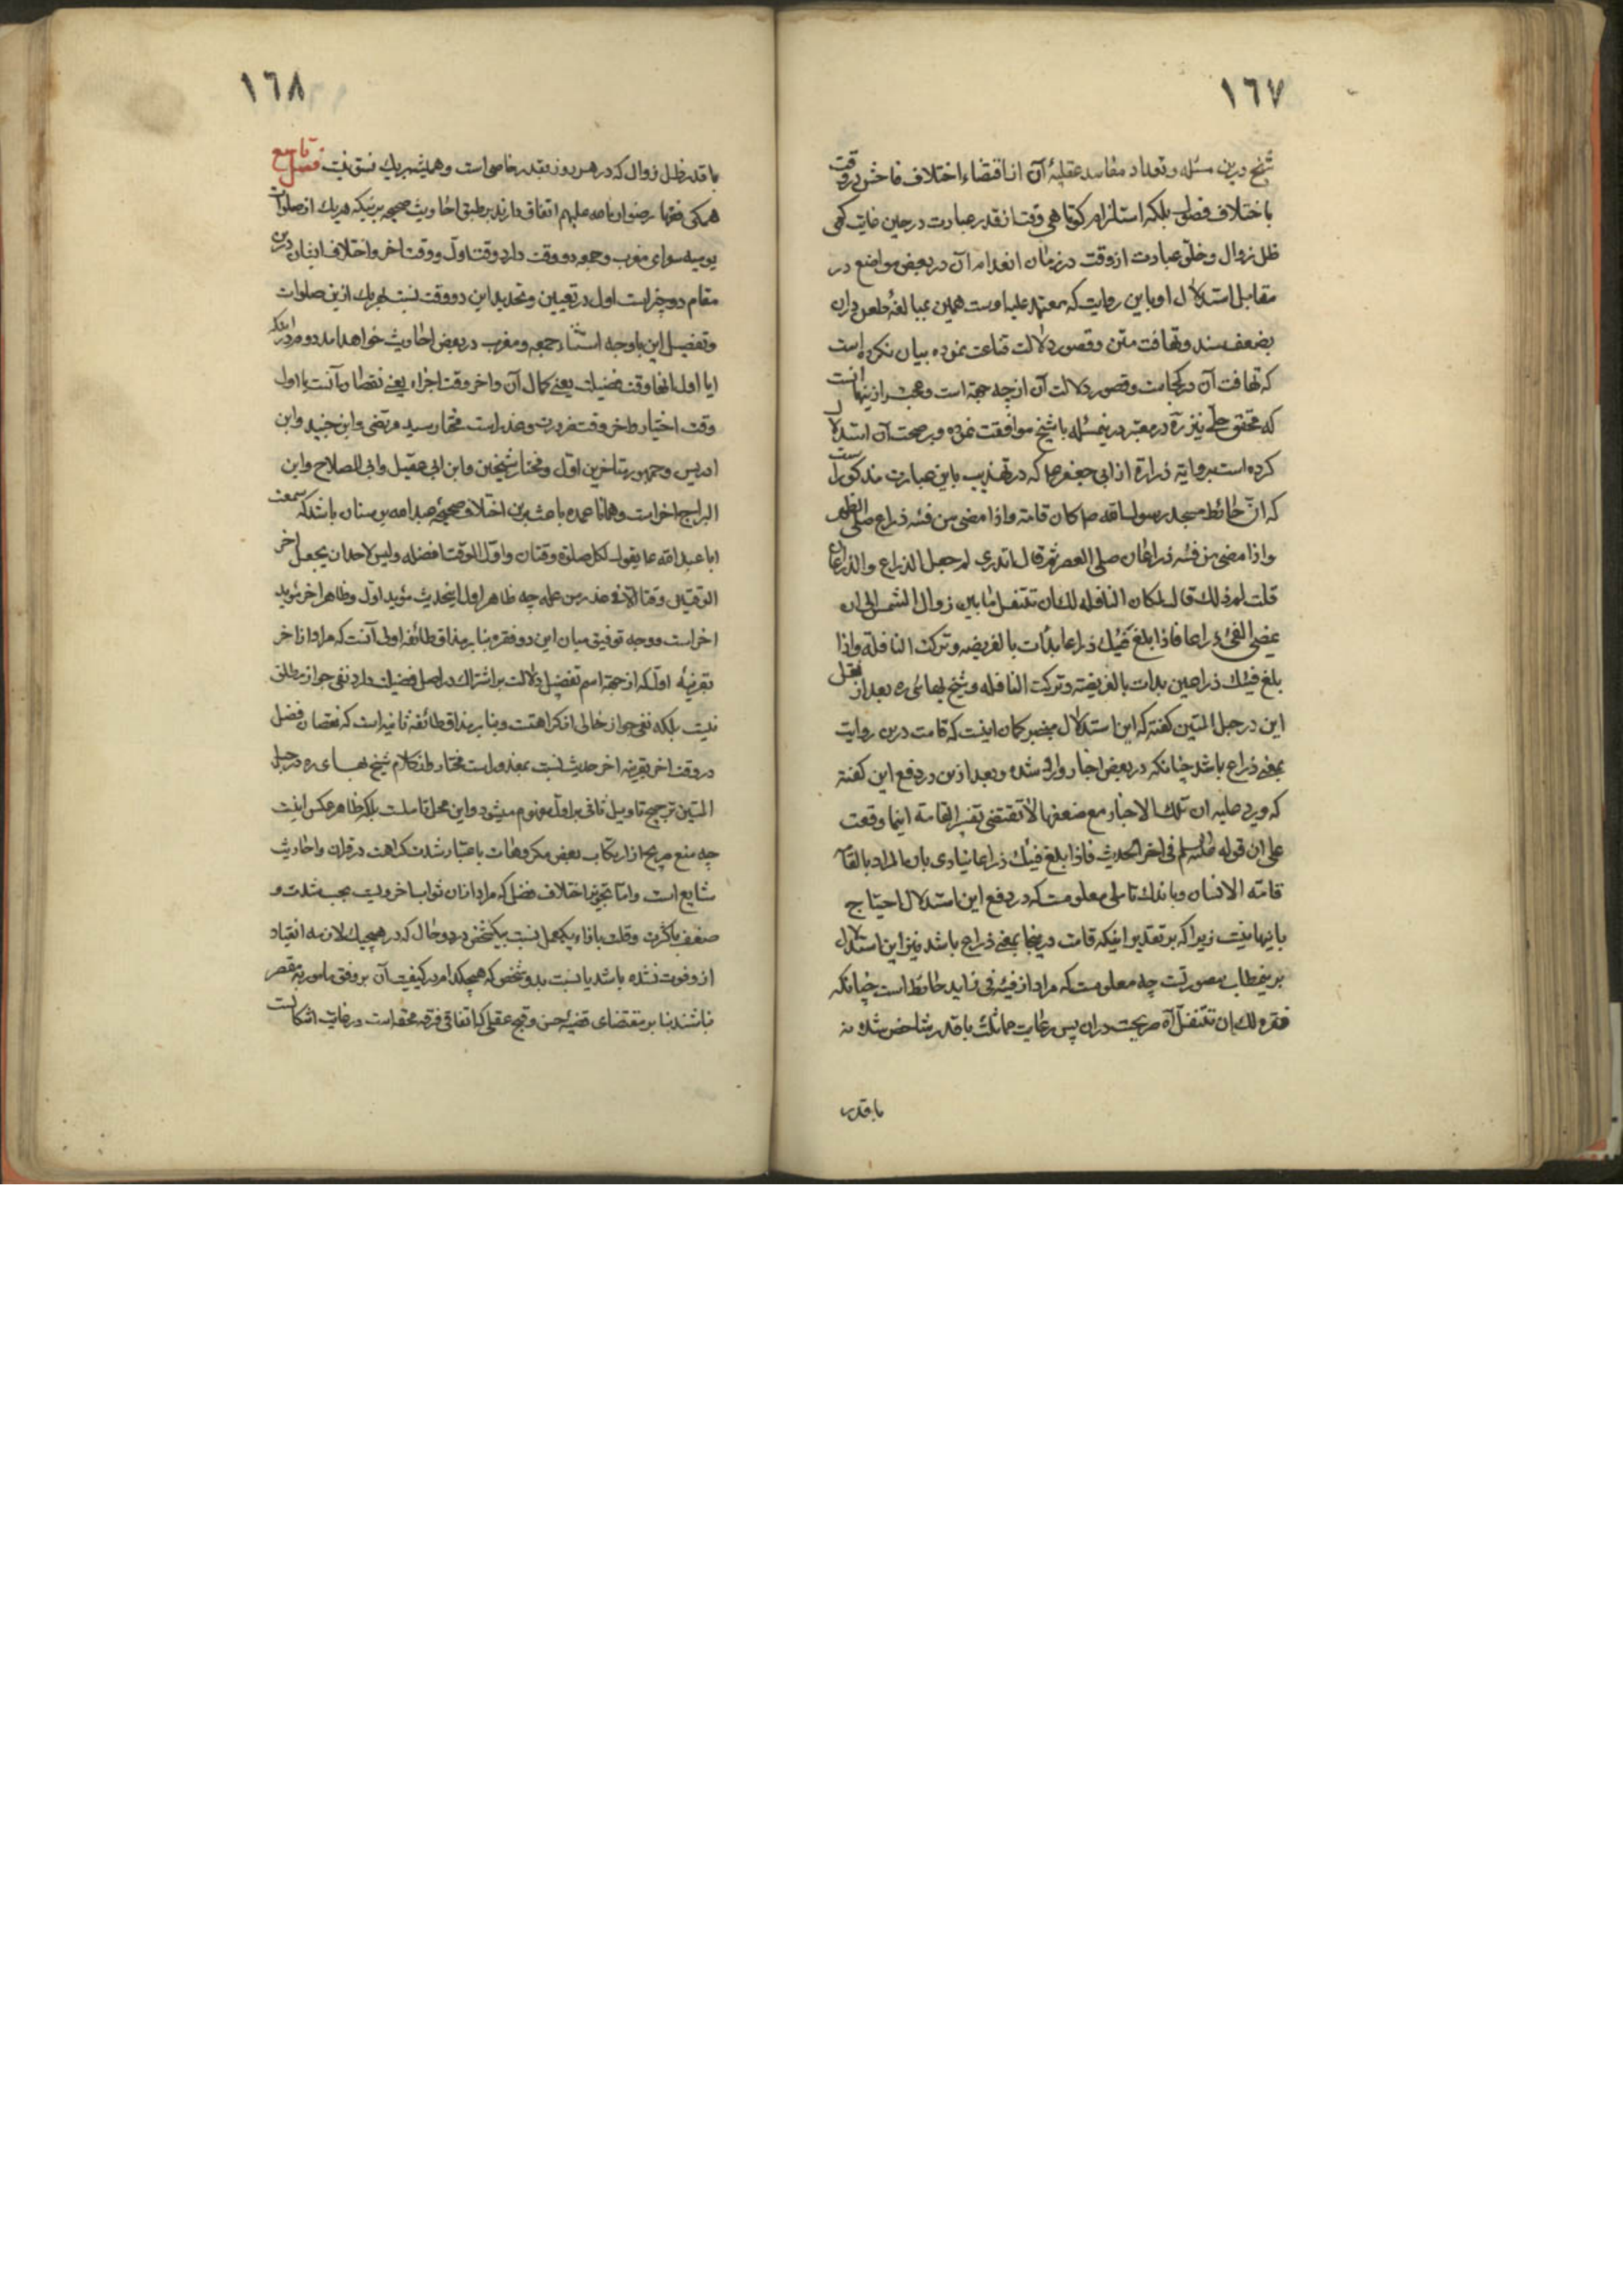 ١٦٧
شیخ درین مسئله و تعداد مفاسد عقلیهٔ آن از اقتضاء اختلاف فاحش در وقت
باختلاف فصول بلکه استلزام کوتاهی وقت از قدر عبادت در حین غایت کمی
ظل زوال و خلو عبادت از وقت در زمان انعدام آن در بعض مواضع در
مقابل استدلال او باین روایت که معتمد علیه اوست همین بمبالغهٔ طعن دران
بضعف سند و تهافت متن و قصور دلالت قناعت نموده بیان نکرده است
که تهافت آن در کجاست و قصور دلالت آن از چه جهة است و عجبتر ازینها آنست
که محقق حلی نیز ره در معتبر درینمسئله با شیخ موافقت نموده و بر صحت آن استدلال
کرده است بروایة زرارة از ابی جعفر ع که در تهذیب باین عبارت مذکور است
که ان حائط مسجد رسول الله ص کان قامة و اذا مضی من فیئه ذراع صلی الظهر
و اذا مضی من فیئه ذراعان صلی العصر ثم قال اتدری لم جعل الذراع والذراعان
قلت لم ذلك قال لمکان النافله لك ان تتنفل ما بین زوال الشمس الی ان
یمضی الفئ ذراعا فاذا بلغ فیئك ذراعا بدأت بالفریضه و ترکت النافلة و اذا
بلغ فیئك ذراعین بدات بالفریضة و ترکت النافله و شیخ بهائی ره بعد از نقل
این در حبل المتین گفته که این استدلال مبنی بر گمان اینست که قامت درین روایت
بمعنی ذراع باشد چنانکه در بعض اخبار وارد شده و بعد ازین در دفع این گفته
که و یرد علیه ان تلك الاخبار مع ضعفها لا تقتضی تفسیر القامة اینما وقعت
علی ان قوله علیه السلم فی اخر الحدیث فاذا بلغ فیئك ذراعا ینادی بان المراد بالقامة
قامة الانسان و باندك تاملی معلومست که در دفع این استدلال احتیاج
باینها نیست زیرا که بر تقدیر اینکه قامت درینجا بمعنی ذراع باشد نیز این استدلال
برینمطلب بصورتست چه معلومست که مراد از فیئه فی زاید حائط است چنانکه
فقره لك ان تتنفل آه صریحست دران پس رعایت مماثلت با قدر شاخص شده نه
با قدر
١٦٨
با قدر ظل زوال که در هر روز بقدر خاصی است و همیشه بریك نسق نیست فصل تاسع
همگی فقها رضوان الله علیهم اتفاق دارند بر طبق احادیث صحیحه برینکه هریك از صلوات
یومیه سوای مغرب و جمعه دو وقت دارد وقت اول و وقت اخر و اختلاف ایشان درین
مقام دو چیز است اول در تعیین و تحدید این دو وقت نسبت بهر یك ازین صلوات
و تفصیل این با وجه استثناء جمعه و مغرب در بعض احادیث خواهد امد دوم در اینکه
ایا اول انها وقت فضیلت یعنی کمال آن و اخر وقت اجزاء یعنی نقصان آنست یا اول
وقت اختیار و اخر وقت ضرورت و عذر است مختار سید مرتضی و ابن جنید و ابن
ادریس و جمهور متاخرین اول و مختار شیخین و ابن ابی عقیل و ابی الصلاح و ابن
البراج اخر است و همانا عمده باعث برین اختلاف صحیحهٔ عبد الله بن سنان باشد که سمعت
ابا عبد الله ع یقول لکل صلوة وقتان و اول الوقت افضله و لیس لاحد ان یجعل اخر
الوقتین وقتا الا فی عذر من عله چه ظاهر اول اینحدیث مؤید اول و ظاهر اخر مؤید
اخر است و وجه توفیق میان این دو فقره بنابر مذاق طائفه اولی آنست که مراد از اخر
بقرینهٔ اول که از جهة اسم تفضیل دلالت بر اشتراك در اصل فضیلت دارد نفی جواز مطلق
نیست بلکه نفی جواز خالی از کراهتست و بنابر مذاق طائفه ثانیه است که نقصان فضل
در وقت اخر بقرینه اخر حدیث نسبت بمعذور است مختار و از کلام شیخ بهای ره در حبل
المتین ترجیح تاویل ثانی بر اول مفهوم میشود و این محل تاملست بلکه ظاهر عکس اینست
چه منع صریح از ارتکاب بعض مکروهات باعتبار شدت کراهت در قران و احادیث
شایع است و اما تجویز اختلاف فضل که مراد ازان ثواب اخرویست بحسب شدت و
ضعف یا کثرت و قلت بازاء یکعمل نسبت بیکشخص در دو حال که در هیچیك لازمه انقیاد
ازو فوت نشده باشد یا نسبت بدو شخص که هیچکدام در کیفیت آن بر وفق مامور به مقصر
نباشند بنابر مقتضای قضیه حسن و قبح عقلی که اتفاقی فرقه محقه است در غایت اشکالست